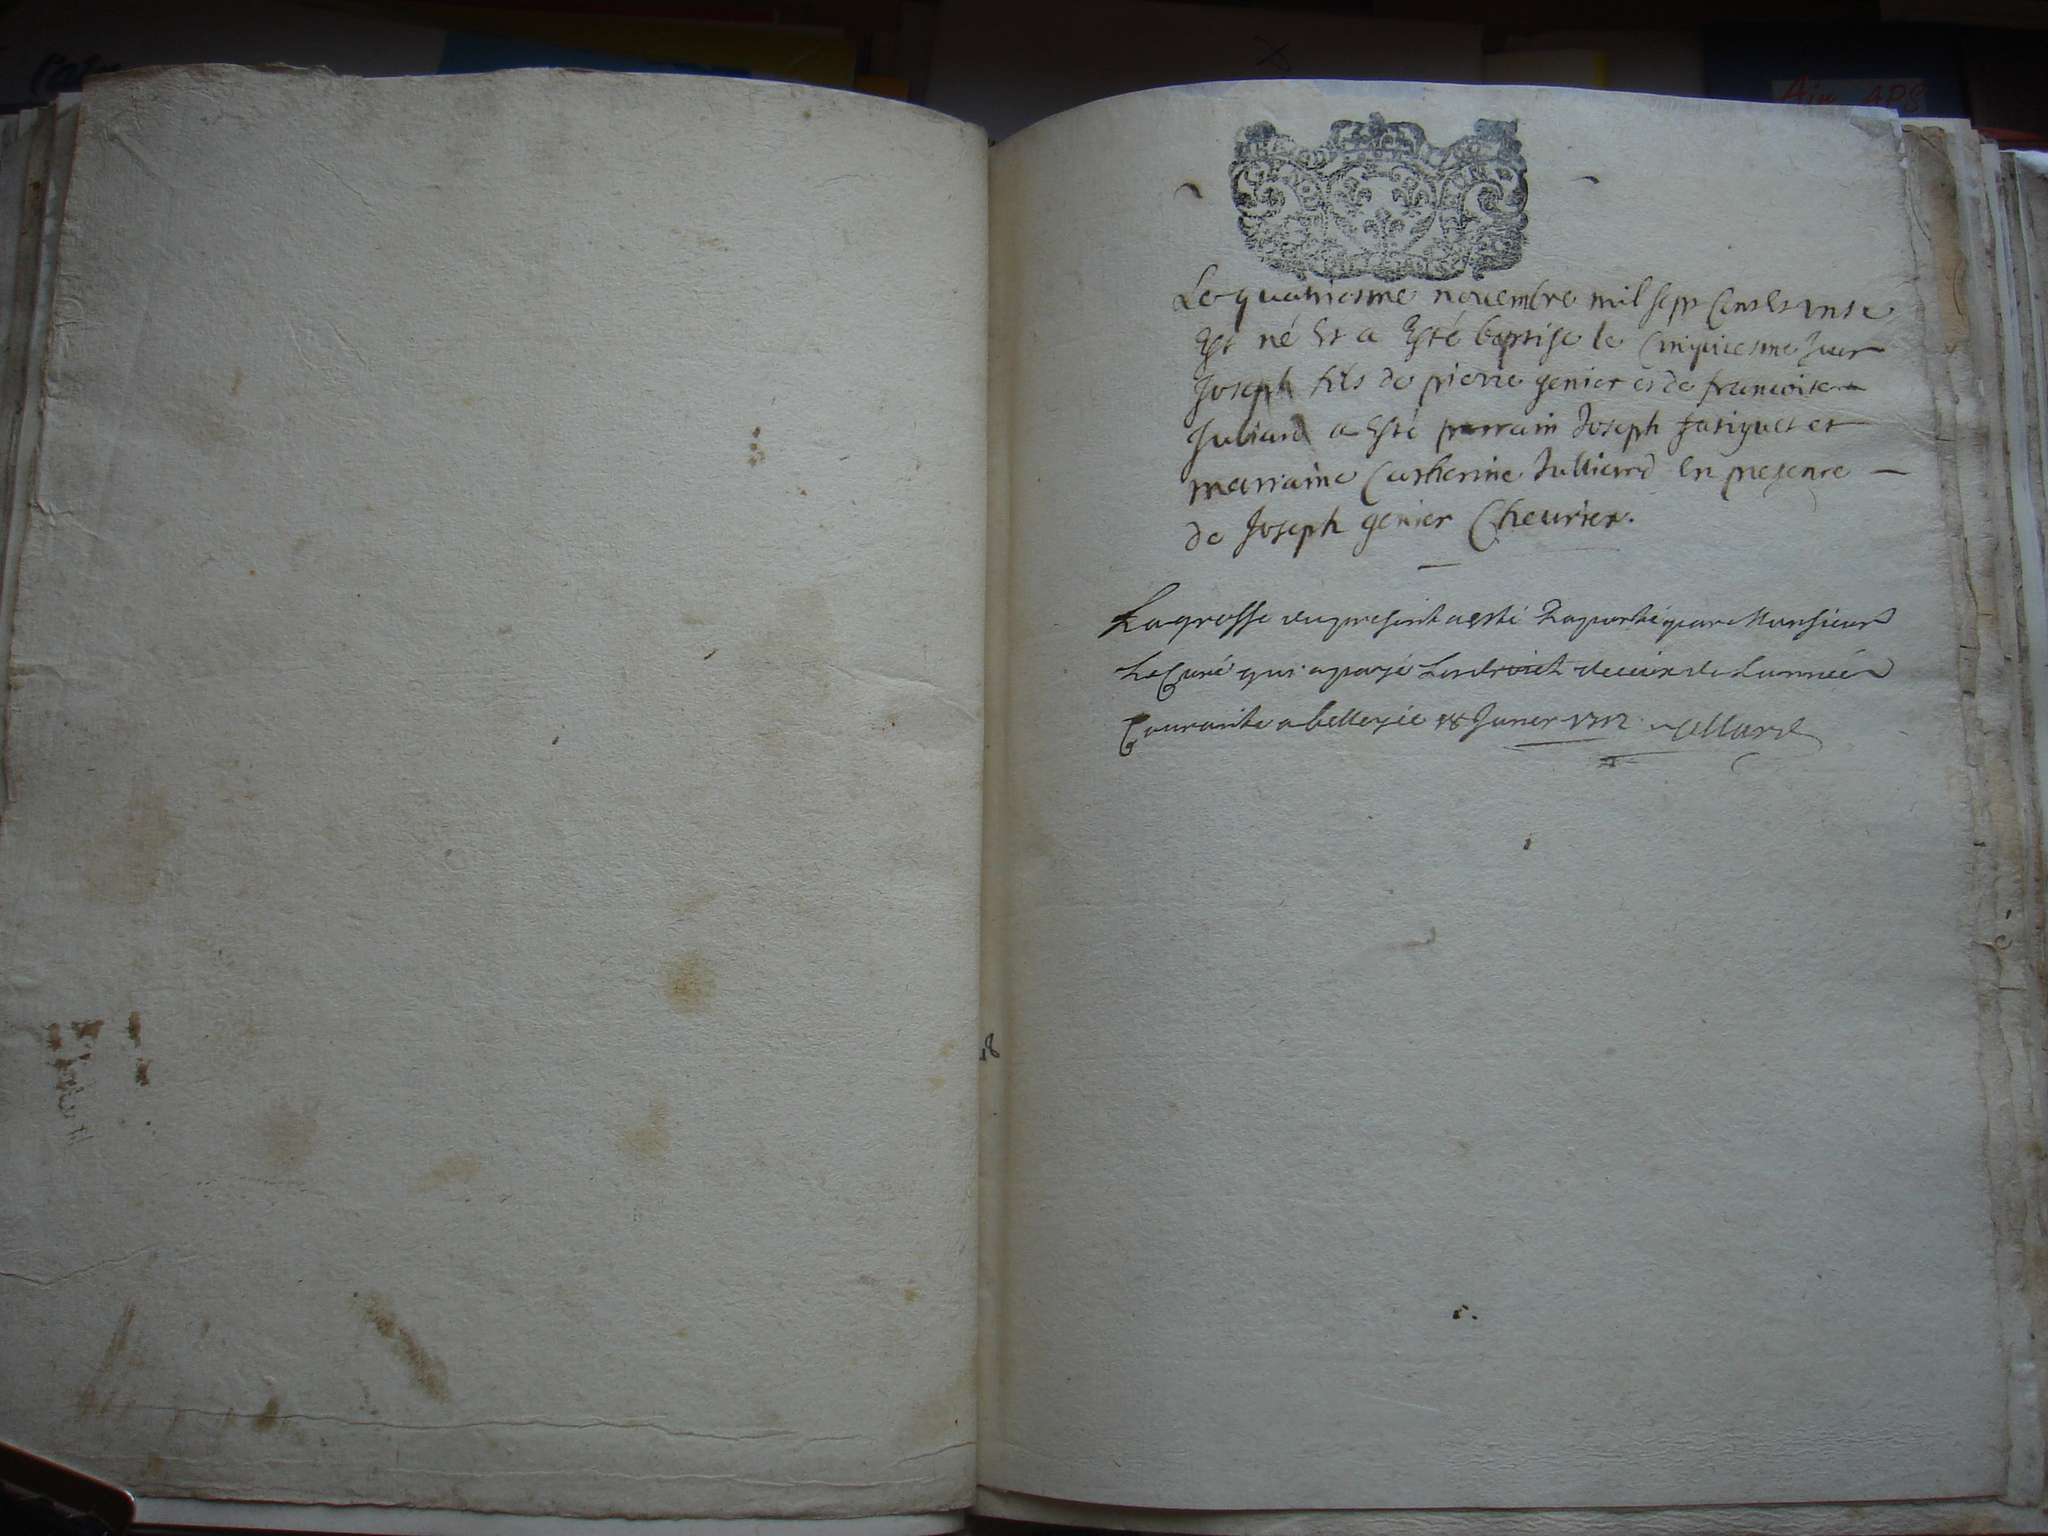 Le quatriesme novembre mil sept Cens et unse
Est né Et a Esté baptise le Cinquiesme Jour
Joseph fils de pierre genier et de francoise
Juliard a Esté parrain Joseph et
marraine Catherine Julliard En presence
de Joseph genier Cheurier.
La grosse du present a esté Raporté par Monsieur
Le Curé qui a payé Les droict de de Lannéé
Courante a belleysée 18 Janer 1712
18